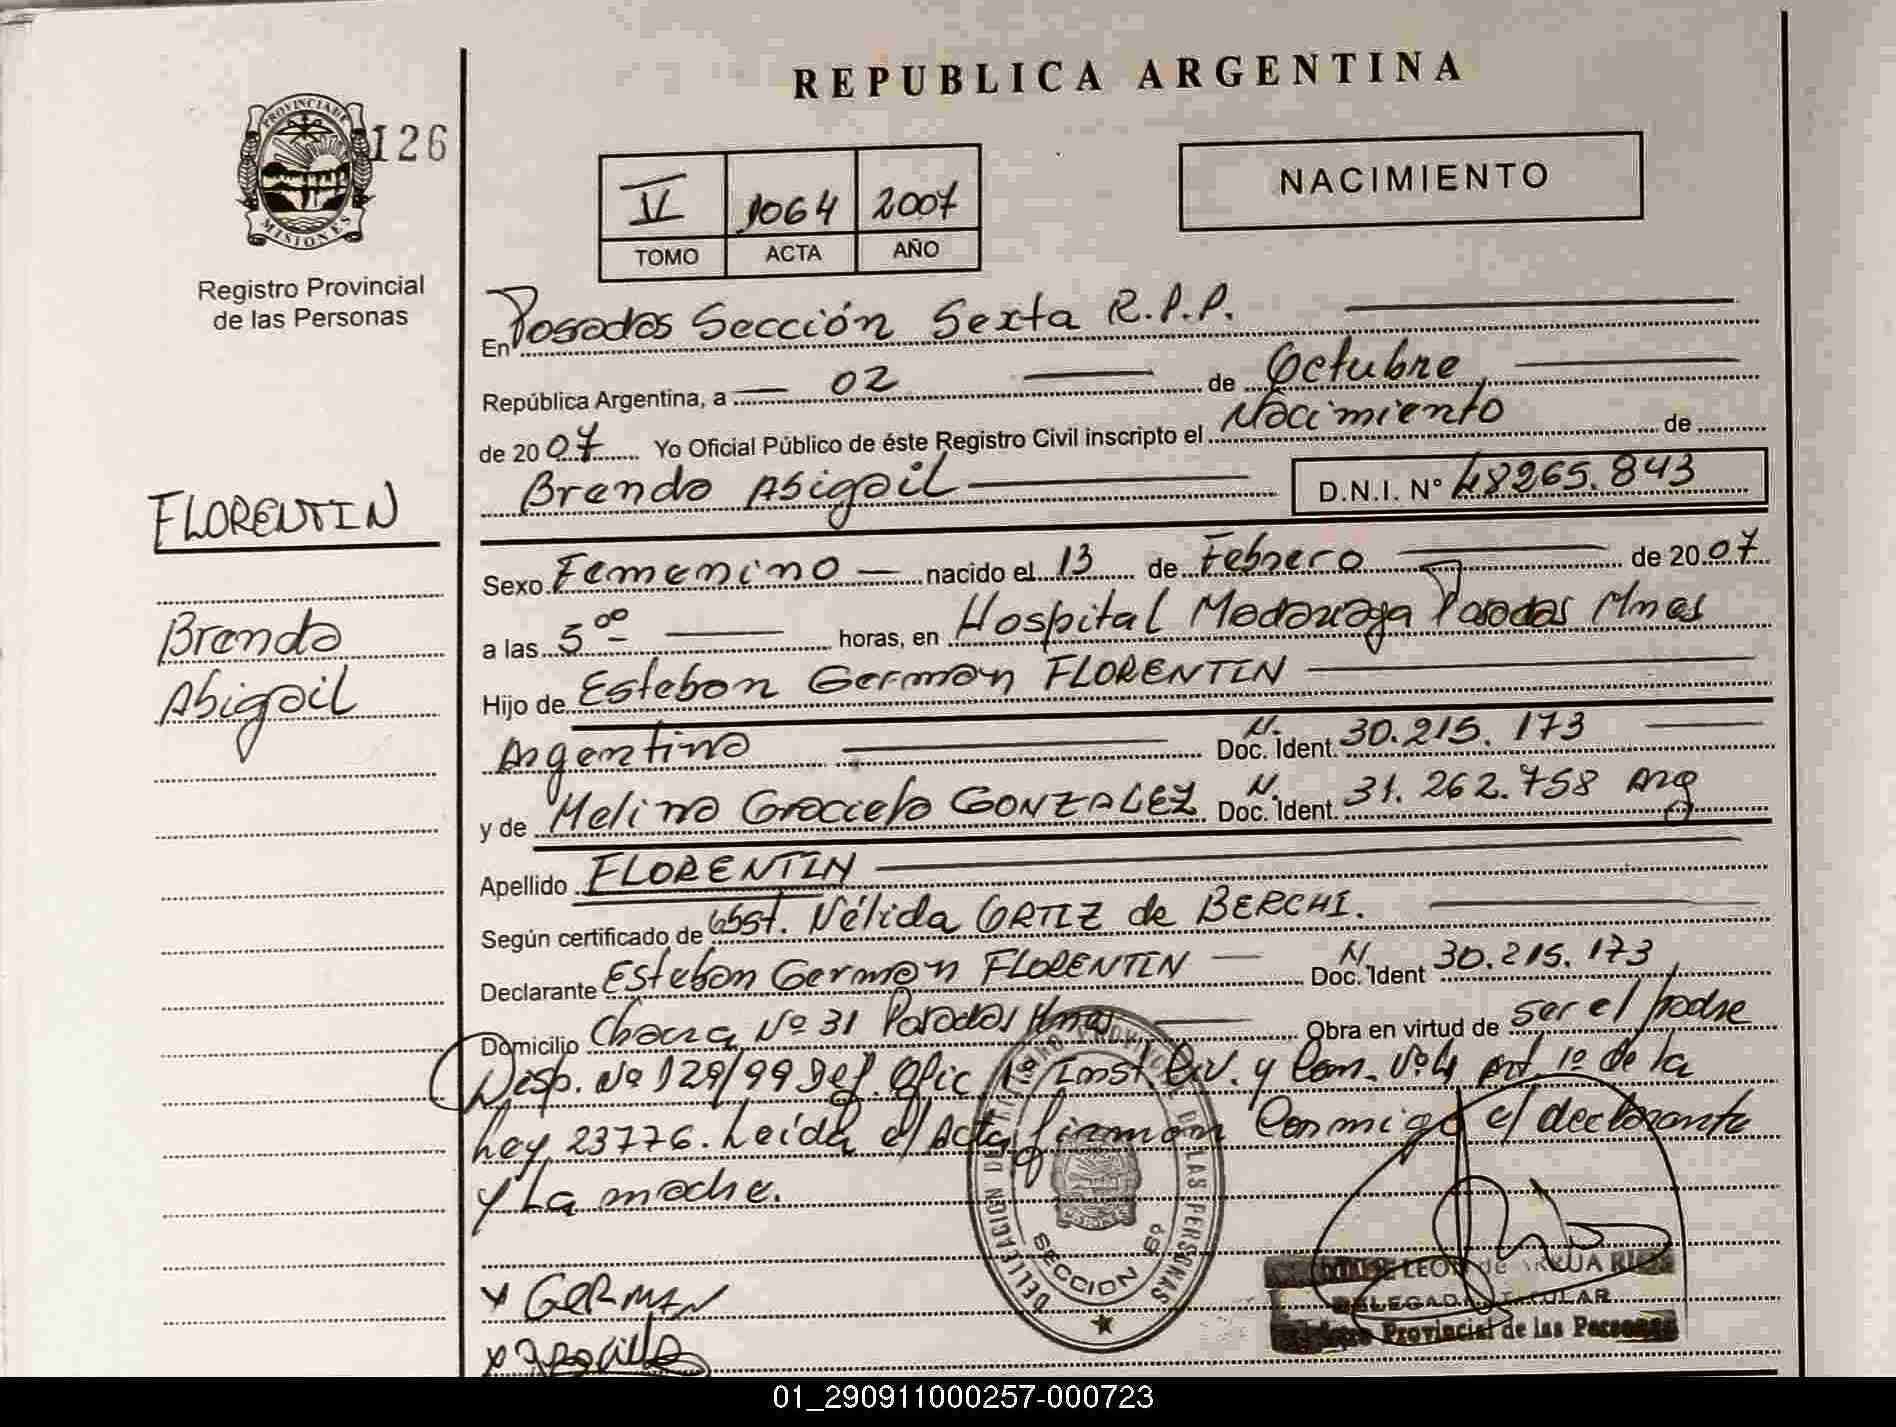 REPUBLICA ARGENTINA
PROVINCIA DE
MISIONES
126
Registro Provincial
de las Personas
V 1064 2007
TOMO ACTA AÑO
NACIMIENTO
En Posadas Sección Sexta R.P.P.
República Argentina, a 02 de Octubre
de 2007 Yo Oficial Público de éste Registro Civil inscripto el Nacimiento de
Brenda Abigail D.N.I. N° 48265.843
FLORENTIN
Brenda
Abigail
Sexo Femenino nacido el 13 de Febrero de 2007
a las 5 00 horas, en Hospital Madariaga Posadas Mnes
Hijo de Esteban Germán FLORENTIN
Argentino N. Doc. Ident. 30.215.173
y de Melina Graciela GONZALEZ N. Doc. Ident. 31.262.758 Arg
Apellido FLORENTIN
Según certificado de Obst. Nélida ORTIZ de BERCHI.
Declarante Esteban Germán FLORENTIN N. Doc. Ident 30.215.173
Domicilio Chacra Nº 31 Posadas Mnes Obra en virtud de ser el padre
Disp. Nº 129/99 Def. Ofic 1º Inst. Civ. y Com. Nº 4 Art 1º de la
Ley 23776. Leída el Acta firman conmigo el declarante
y La madre.
DELEGACION DEL REGISTRO PROVINCIAL DE LAS PERSONAS
SECCION 6ª
x GERMAN
x Graciela
LEON de
DELEGADA TITULAR
Provincial de las Personas
01_290911000257-000723